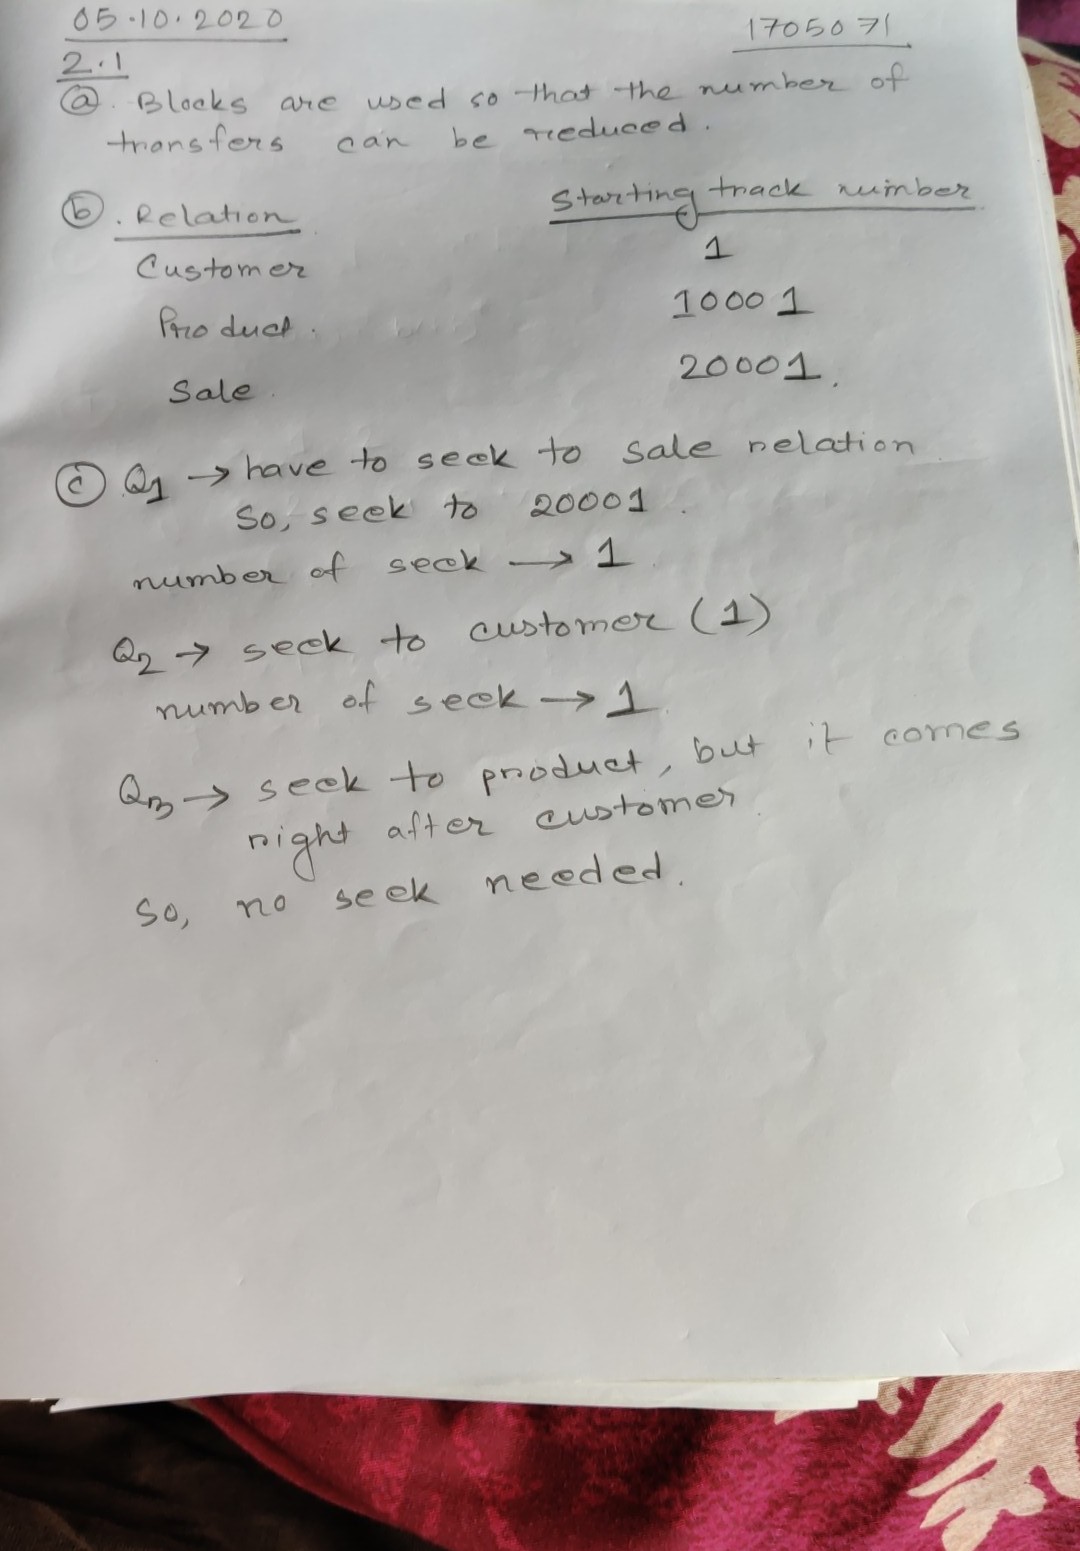 05.10.2020
1705071
2.1
ⓐ. Blocks are used so that the number of
transfers can be reduced.
ⓑ. Relation Starting track number
Customer 1
Product. 10001
Sale. 20001.
ⓒ Q1 → have to seek to sale relation.
So, seek to 20001.
number of seek → 1.
Q2 → seek to customer (1)
number of seek → 1.
Q3 → seek to product, but it comes
right after customer.
So, no seek needed.